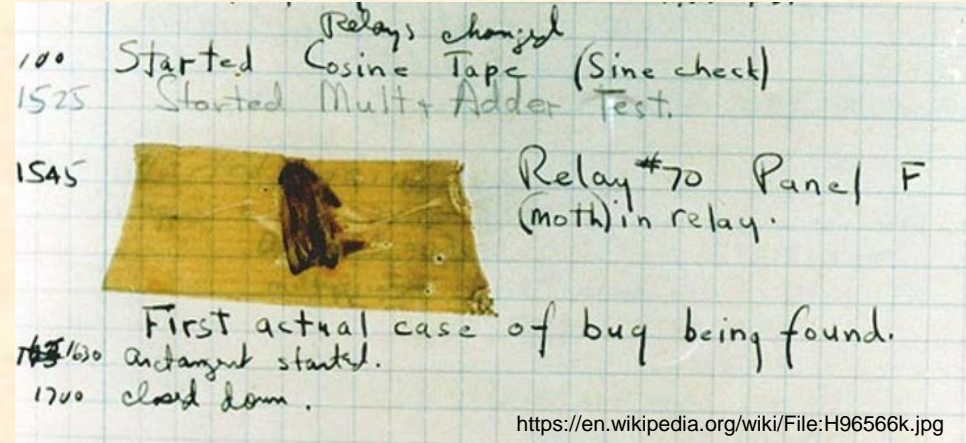 Relays changed
1100 Started Cosine Tape (Sine check)
1525 Started Mult + Adder Test.
1545 Relay #70 Panel F
(moth) in relay.
First actual case of bug being found.
1630 antangent started.
1700 closed down.
https://en.wikipedia.org/wiki/File:H96566k.jpg